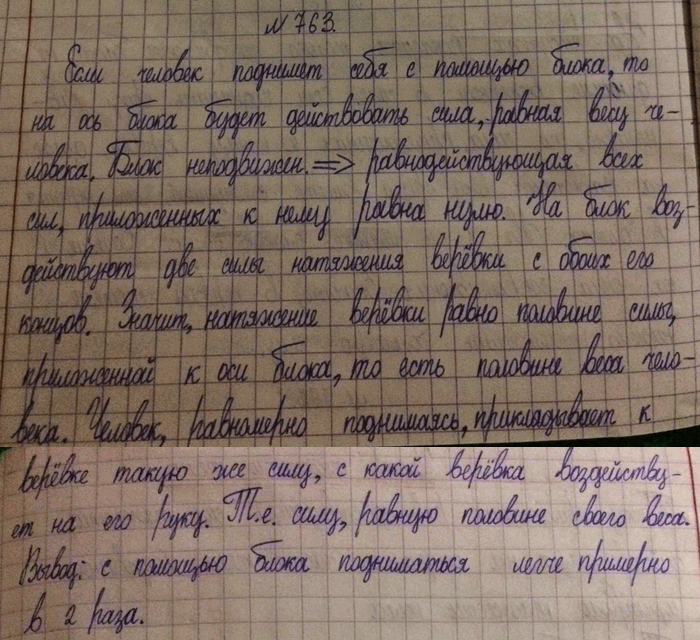 № 763.
Если человек поднимет себя с помощью блока, то
на ось блока будет действовать сила, равная весу че-
ловека. Блок неподвижен. ⟹ равнодействующая всех
сил, приложенных к нему равна нулю. На блок воз-
действуют две силы натяжения верёвки с обоих его
концов. Значит, натяжение верёвки равно половине силы,
приложенной к оси блока, то есть половине веса чело-
века. Человек, равномерно поднимаясь, прикладывает к
верёвке такую же силу, с какой верёвка воздейству-
ет на его руку. Т.е. силу, равную половине своего веса.
Вывод: с помощью блока подниматься легче примерно
в 2 раза.